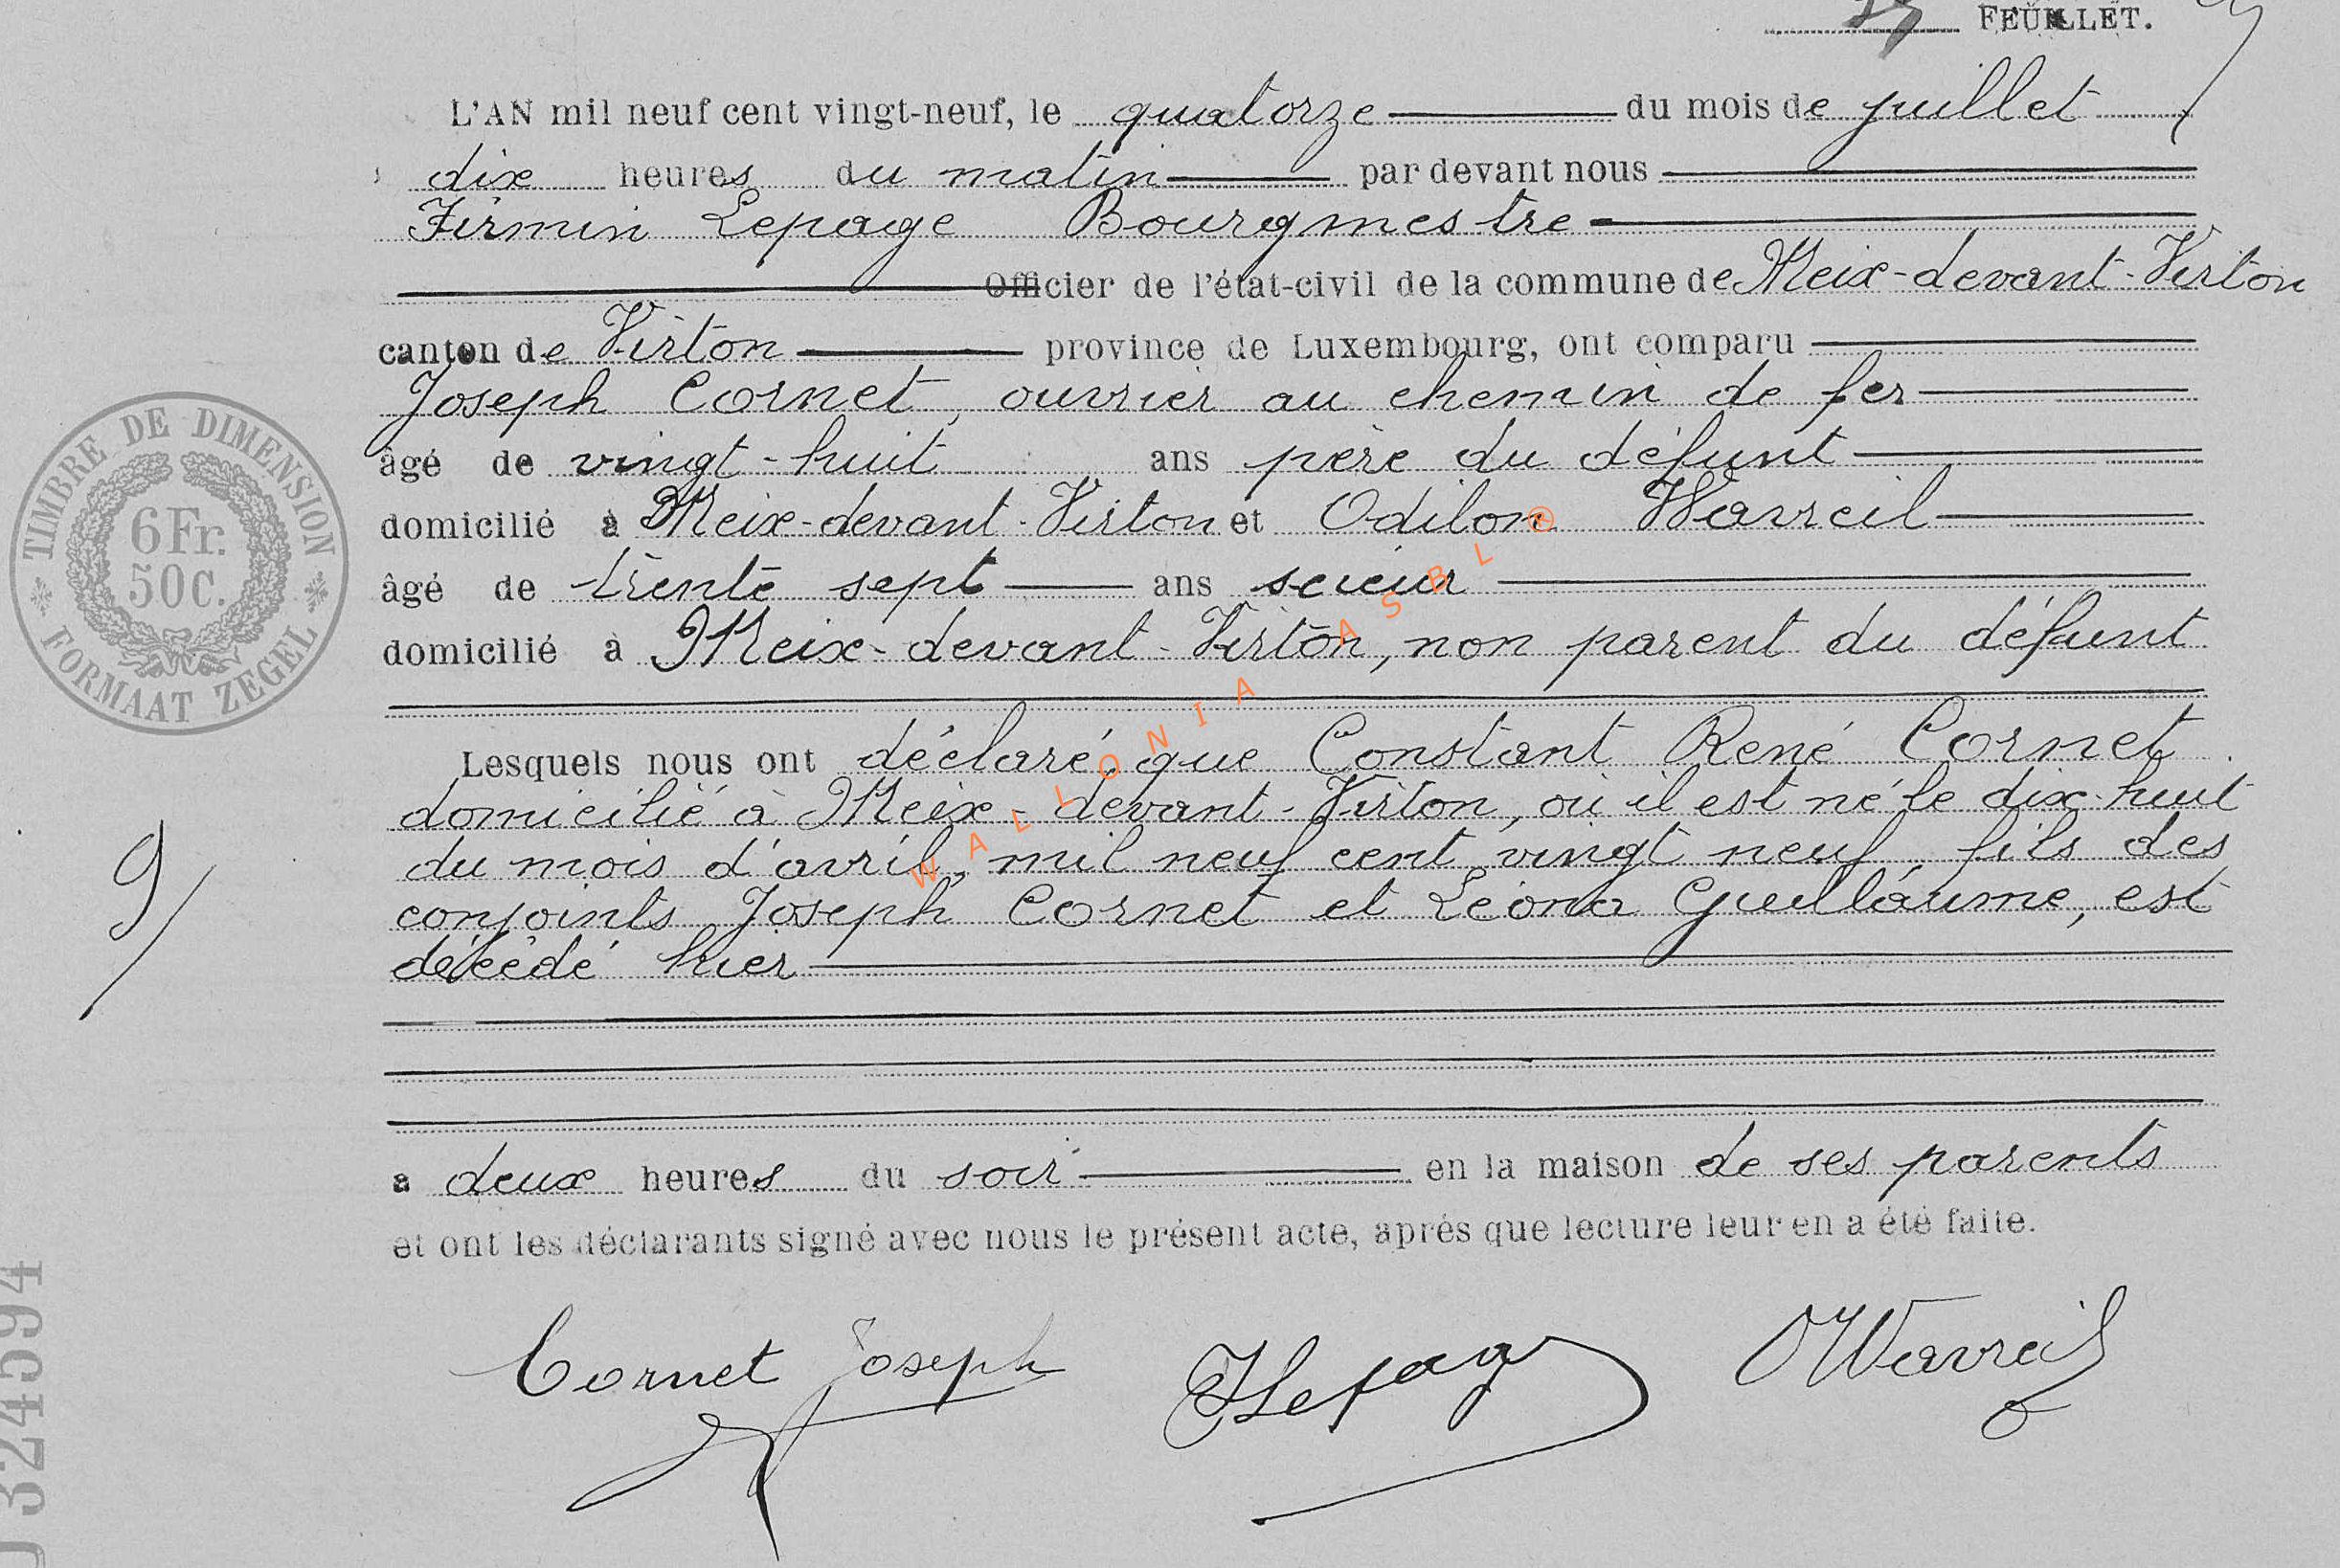 FEUILLET.
L'AN mil neuf cent vingt-neuf, le quatorze du mois de juillet
dix heures du matin par devant nous
Firmin Lepage Bourgmestre
Officier de l'état-civil de la commune de Meix-devant-Virton
canton de Virton province de Luxembourg, ont comparu
Joseph Cornet, ouvrier au chemin de fer
âgé de vingt-huit ans père du défunt
domicilié à Meix-devant-Virton et Odilon Wavreil
âgé de trente sept ans scieur
domicilié à Meix-devant-Virton, non parent du défunt
Lesquels nous ont déclaré que Constant René Cornet
domicilié à Meix-devant-Virton, où il est né le dix-huit
du mois d'avril, mil neuf cent vingt neuf, fils des
conjoints Joseph Cornet et Léona Guillaume, est
décédé hier
a deux heures du soir en la maison de ses parents
et ont les déclarants signé avec nous le présent acte, aprés que lecture leur en a été faite.
Cornet Joseph FLepage OWavreil
TIMBRE DE DIMENSION
6Fr.
50c.
FORMAAT ZEGEL
9/
324594
WALLONIA ASBL ®